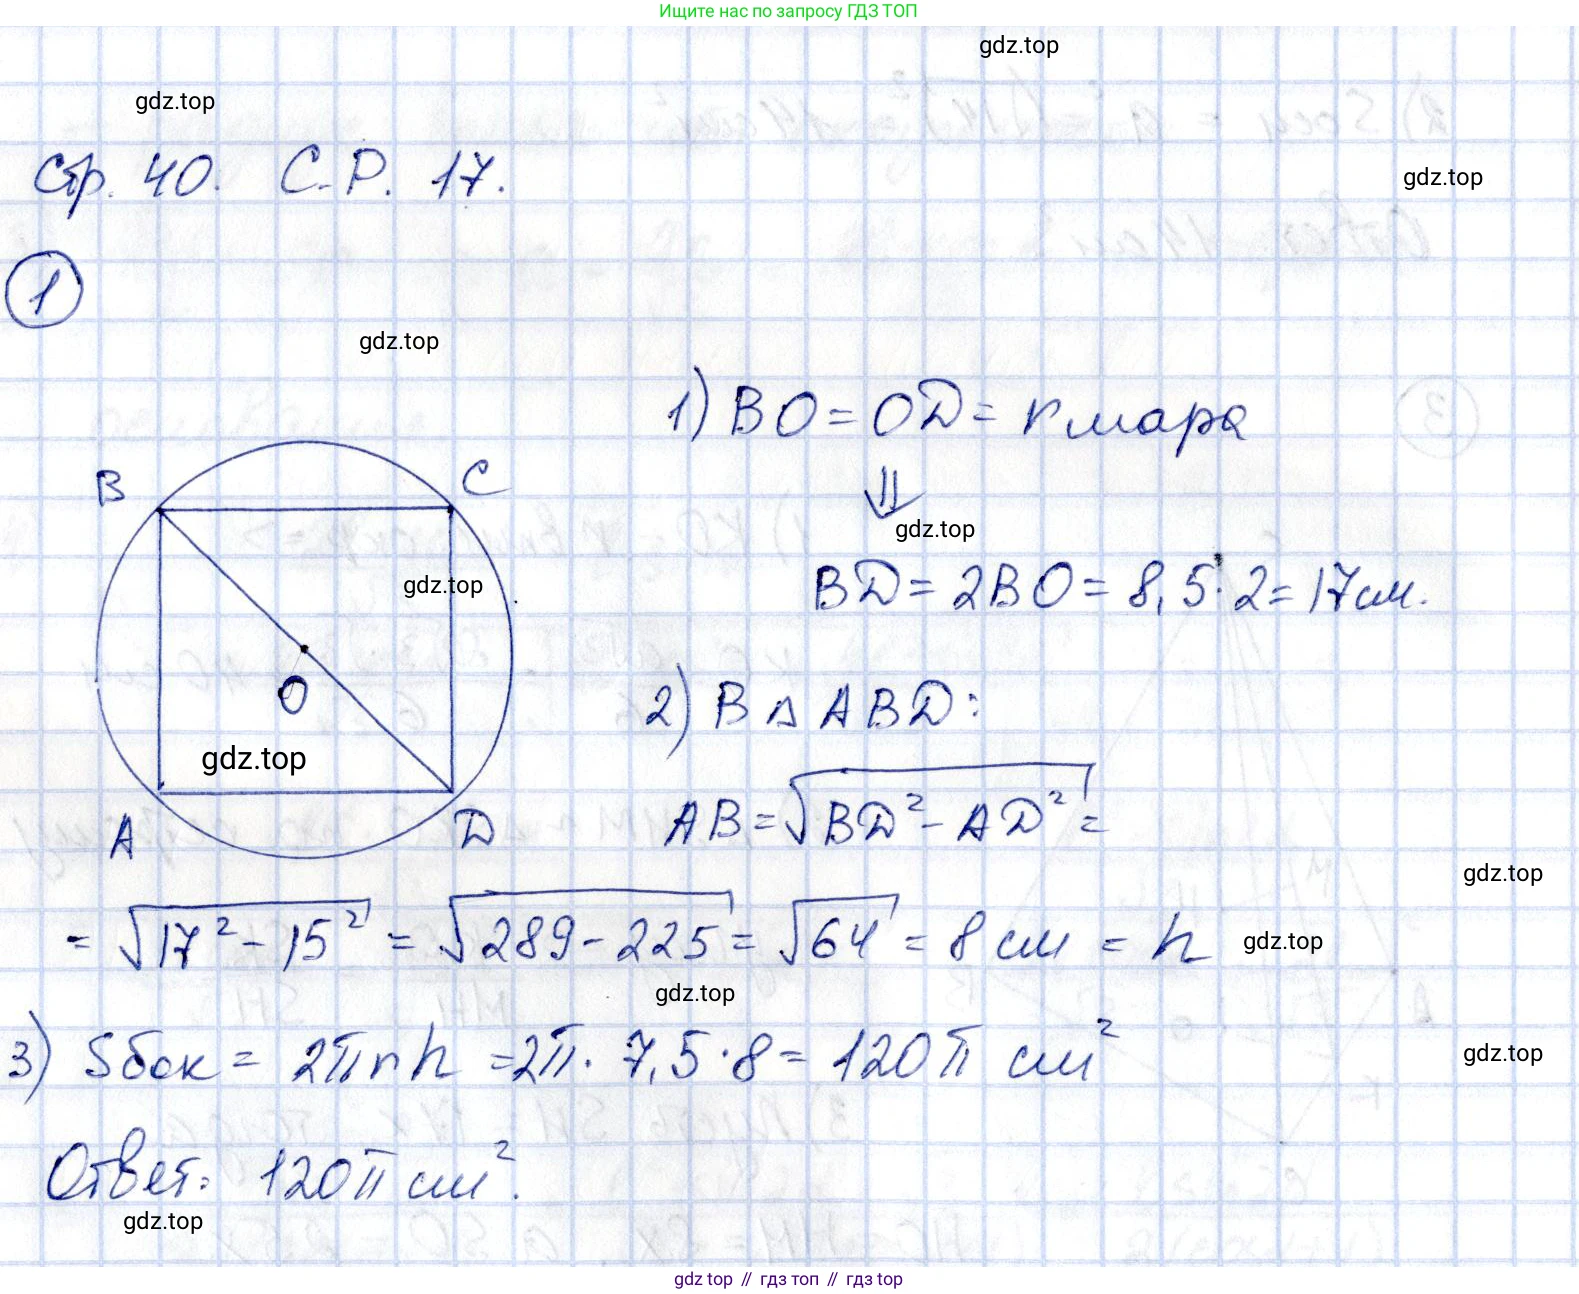 Ищите нас по запросу ГДЗ ТОП
gdz.top
gdz.top
gdz.top
Стр. 40. С.Р. 17.
1
gdz.top
1) BO = OD = r шара
⇓
gdz.top
BD = 2BO = 8,5 · 2 = 17 см.
B
C
gdz.top
O
gdz.top
A
D
2) В △ ABD:
AB = √BD² - AD² =
gdz.top
= √17² - 15² = √289 - 225 = √64 = 8 см = h
gdz.top
gdz.top
3) Sбок = 2πrh = 2π · 7,5 · 8 = 120π см²
gdz.top
Ответ: 120π см².
gdz.top
gdz top // гдз топ // гдз top